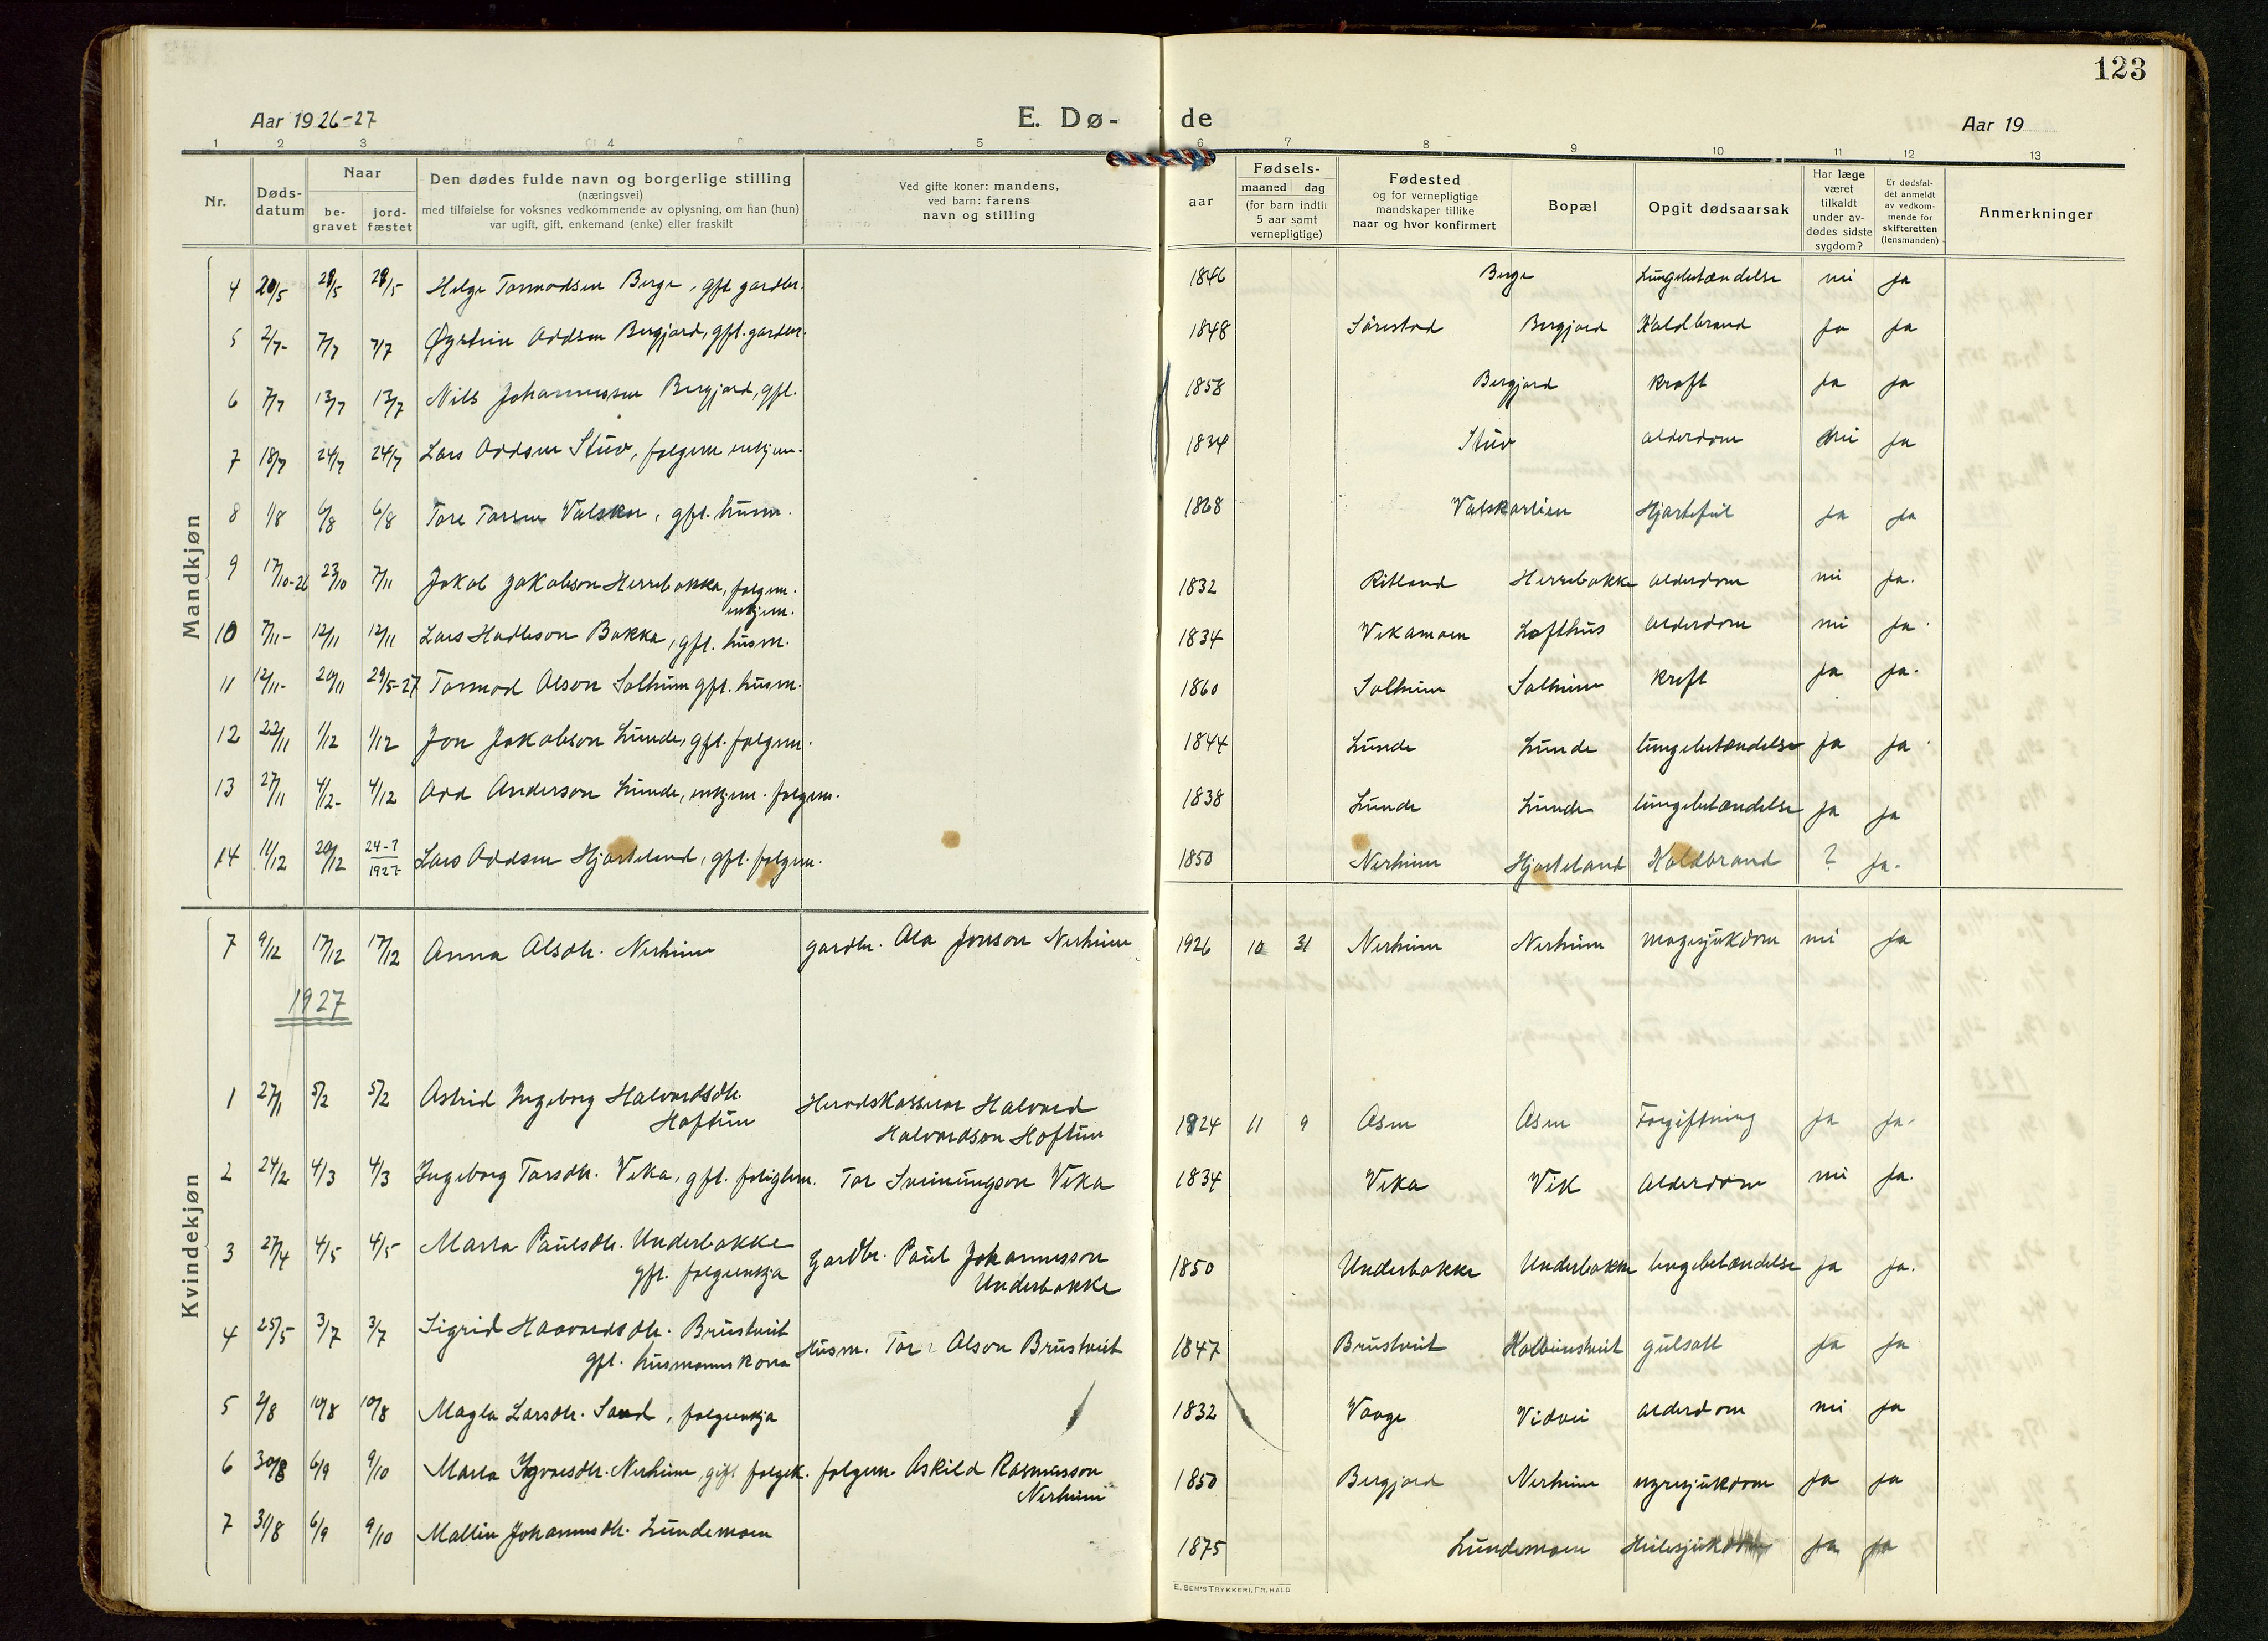 123
Aar 1926-27
E. Dø-
de
Aar 19
1 2 3 4 5 6 7 8 9 10 11 12 13
Nr.
Døds-
datum
Naar
be-
gravet
jord-
fæstet
Den dødes fulde navn og borgerlige stilling
(næringsvei)
med tilføielse for voksnes vedkommende av oplysning, om han (hun)
var ugift, gift, enkemand (enke) eller fraskilt
Ved gifte koner: mandens,
ved barn: farens
navn og stilling
aar
Fødsels-
maaned dag
(for barn indtil
5 aar samt
vernepligtige)
Fødested
og for vernepligtige
mandskaper tillike
naar og hvor konfirmert
Bopæl
Opgit dødsaarsak
Har læge
været
tilkaldt
under av-
dødes sidste
sygdom?
Er dødsfal-
det anmeldt
av vedkom-
mende for
skifteretten
(lensmanden)
Anmerkninger
Mandkjøn
4 20/5 28/5 28/5 Helge Tormodsen Berge, gft gardbr. 1846 Berge Lungebetændelse nei Ja
5 2/7- 7/7 7/7 Øystein Oddsen Bergjord, gft. gardbr. 1848 Sørestad Bergjord Koldbrand Ja Ja
6 7/7 13/7 13/7 Nils Johannessen Bergjord, gft. 1858 Bergjord kræft Ja Ja
7 18/7 24/7 24/7 Lars Oddsen Stuv, folgem. enkjem. 1834 Stuv alderdom nei Ja
8 1/8 6/8 6/8 Tore Torsen Valsker, gft. husm. 1868 Valskarlien Hjartefeil Ja Ja
9 17/10-26 23/10 7/11 Jakob Jakobson Herrebakka, folgem.
enkjem. 1832 Ritland Herrebakke alderdom nei Ja.
10 7/11- 12/11 12/11 Lars Hadleson Bakka, gft. husm. 1834 Vikamoen Lofthus alderdom nei Ja.
11 12/11- 20/11 29/5-27 Tormod Olson Solheim gft. husm. 1860 Solheim Solheim kreft Ja Ja.
12 22/11 1/12 1/12 Jon Jakobson Lunde, gft. folgem. 1844 Lunde Lunde lungebetændelse Ja Ja
13 27/11 4/12- 4/12 Odd Anderson Lunde, enkjem. folgem. 1838 Lunde Lunde lungebetændelse Ja Ja
14 11/12 20/12 24-7 1927 Lars Oddsen Hjorteland, gft. folgem. 1850 Nerheim Hjorteland Koldbrand ? Ja.
Kvindekjøn
7 9/12 17/12 17/12 Anna Olsdtr. Nerheim gardbr. Ola Jonson Nerheim 1926 10 31 Nerheim Nerheim magesjukdom nei Ja
1927
1 27/1 5/2 5/2 Astrid Ingeborg Halvordsdtr.
Hoftun Heradskasserar Halvard
Halvardson Hoftun 1924 11 9 Åsen Åsen Forgiftning Ja Ja.
2 24/2 4/3 4/3 Ingeborg Torsdtr. Vika, gft. Tor Sveinungson Vika 1834 Vika Vik Alderdom nei Ja.
3 27/4 4/5 4/5 Marta Paulsdtr. Underbakke
gft. folgeenkja Gardbr. Paul Johannesson
Underbakke 1850 Underbakke Underbakke lungebetændelse Ja Ja.
4 25/5 3/7 3/7 Sigrid Haavardsdtr. Brustveit
gft. husmannskona Husm. Tor Olson Brustveit 1847 Brustveit gulsott Ja Ja
5 2/8 10/8 10/8 Magla Larsdtr. Sand, folgeenkja 1832 Vaage Vidvei alderdom nei Ja
6 30/8 6/9 9/10 Marta Ingvaldsdtr. Nerheim, gift folgek. folgem. Askild Rasmusson
Nerheim 1850 Bergjord Nerheim nyresjukdom Ja Ja
7 31/8 6/9 9/10 Mallin Johannesdtr. Lundemoen 1875 Lundemoen Ja Ja
E. SEM'S TRYKKERI, FR.HALD